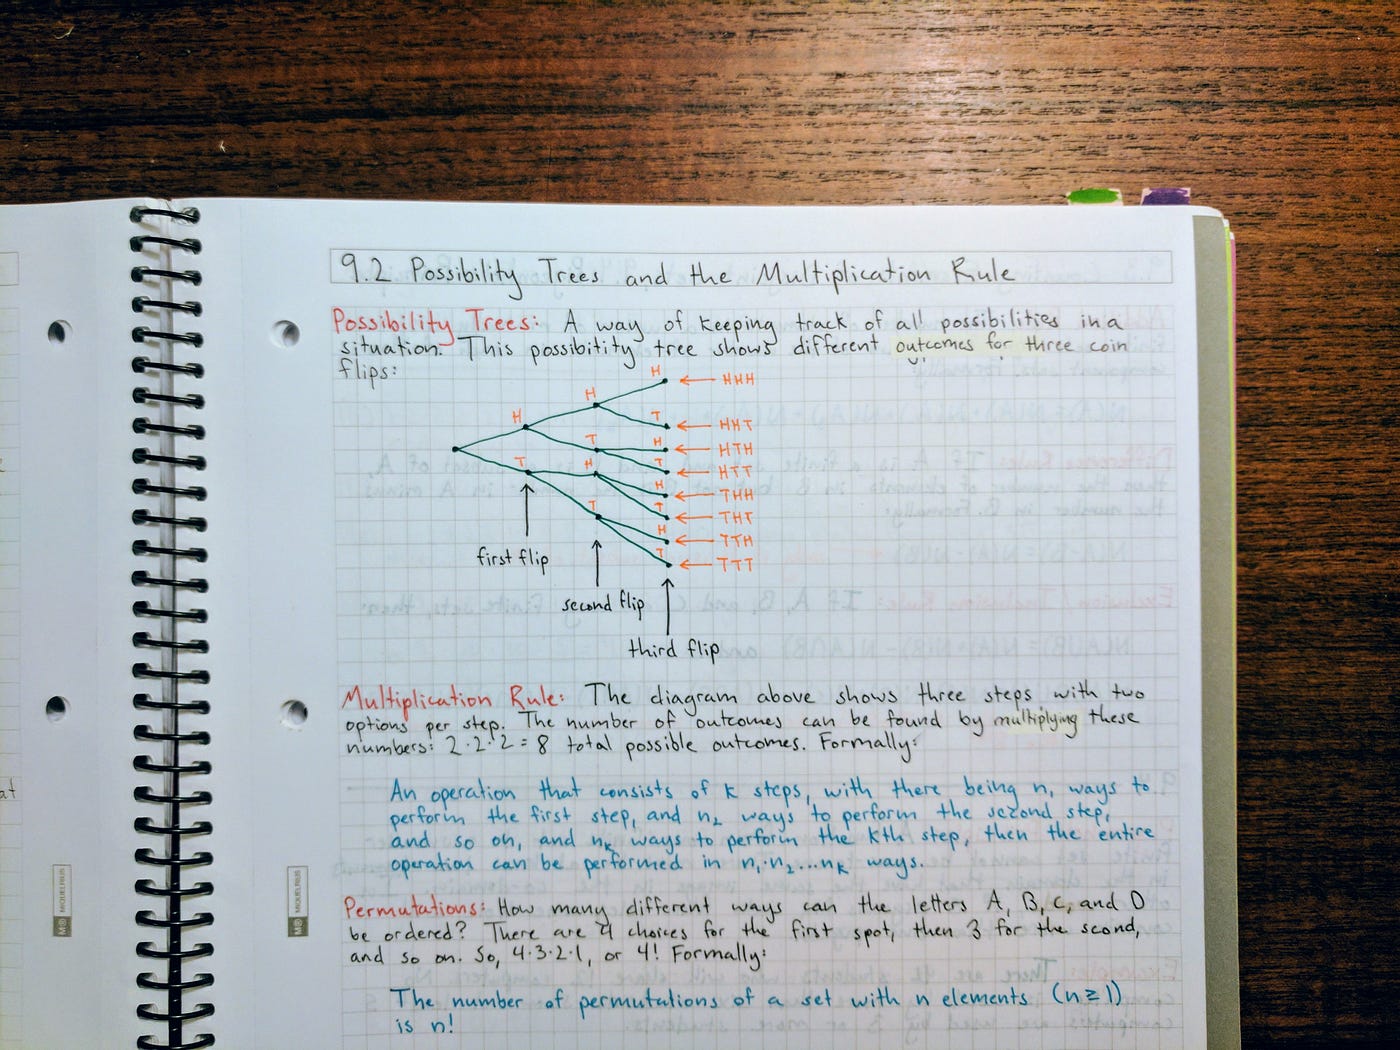 9.2 Possibility Trees and the Multiplication Rule
Possibility Trees: A way of keeping track of all possibilities in a
situation. This possibility tree shows different outcomes for three coin
flips:
H
H
H
T
T
H
T
T
H
H
T
T
H
T
HHH
HHT
HTH
HTT
THH
THT
TTH
TTT
first flip
second flip
third flip
Multiplication Rule: The diagram above shows three steps with two
options per step. The number of outcomes can be found by multiplying these
numbers: 2·2·2 = 8 total possible outcomes. Formally:
An operation that consists of k steps, with there being n₁ ways to
perform the first step, and n₂ ways to perform the second step,
and so on, and nₖ ways to perform the kth step, then the entire
operation can be performed in n₁·n₂...nₖ ways.
Permutations: How many different ways can the letters A, B, C, and D
be ordered? There are 4 choices for the first spot, then 3 for the second,
and so on. So, 4·3·2·1, or 4! Formally:
The number of permutations of a set with n elements (n≥1)
is n!
at
MIQUELRIUS
MIQUELRIUS